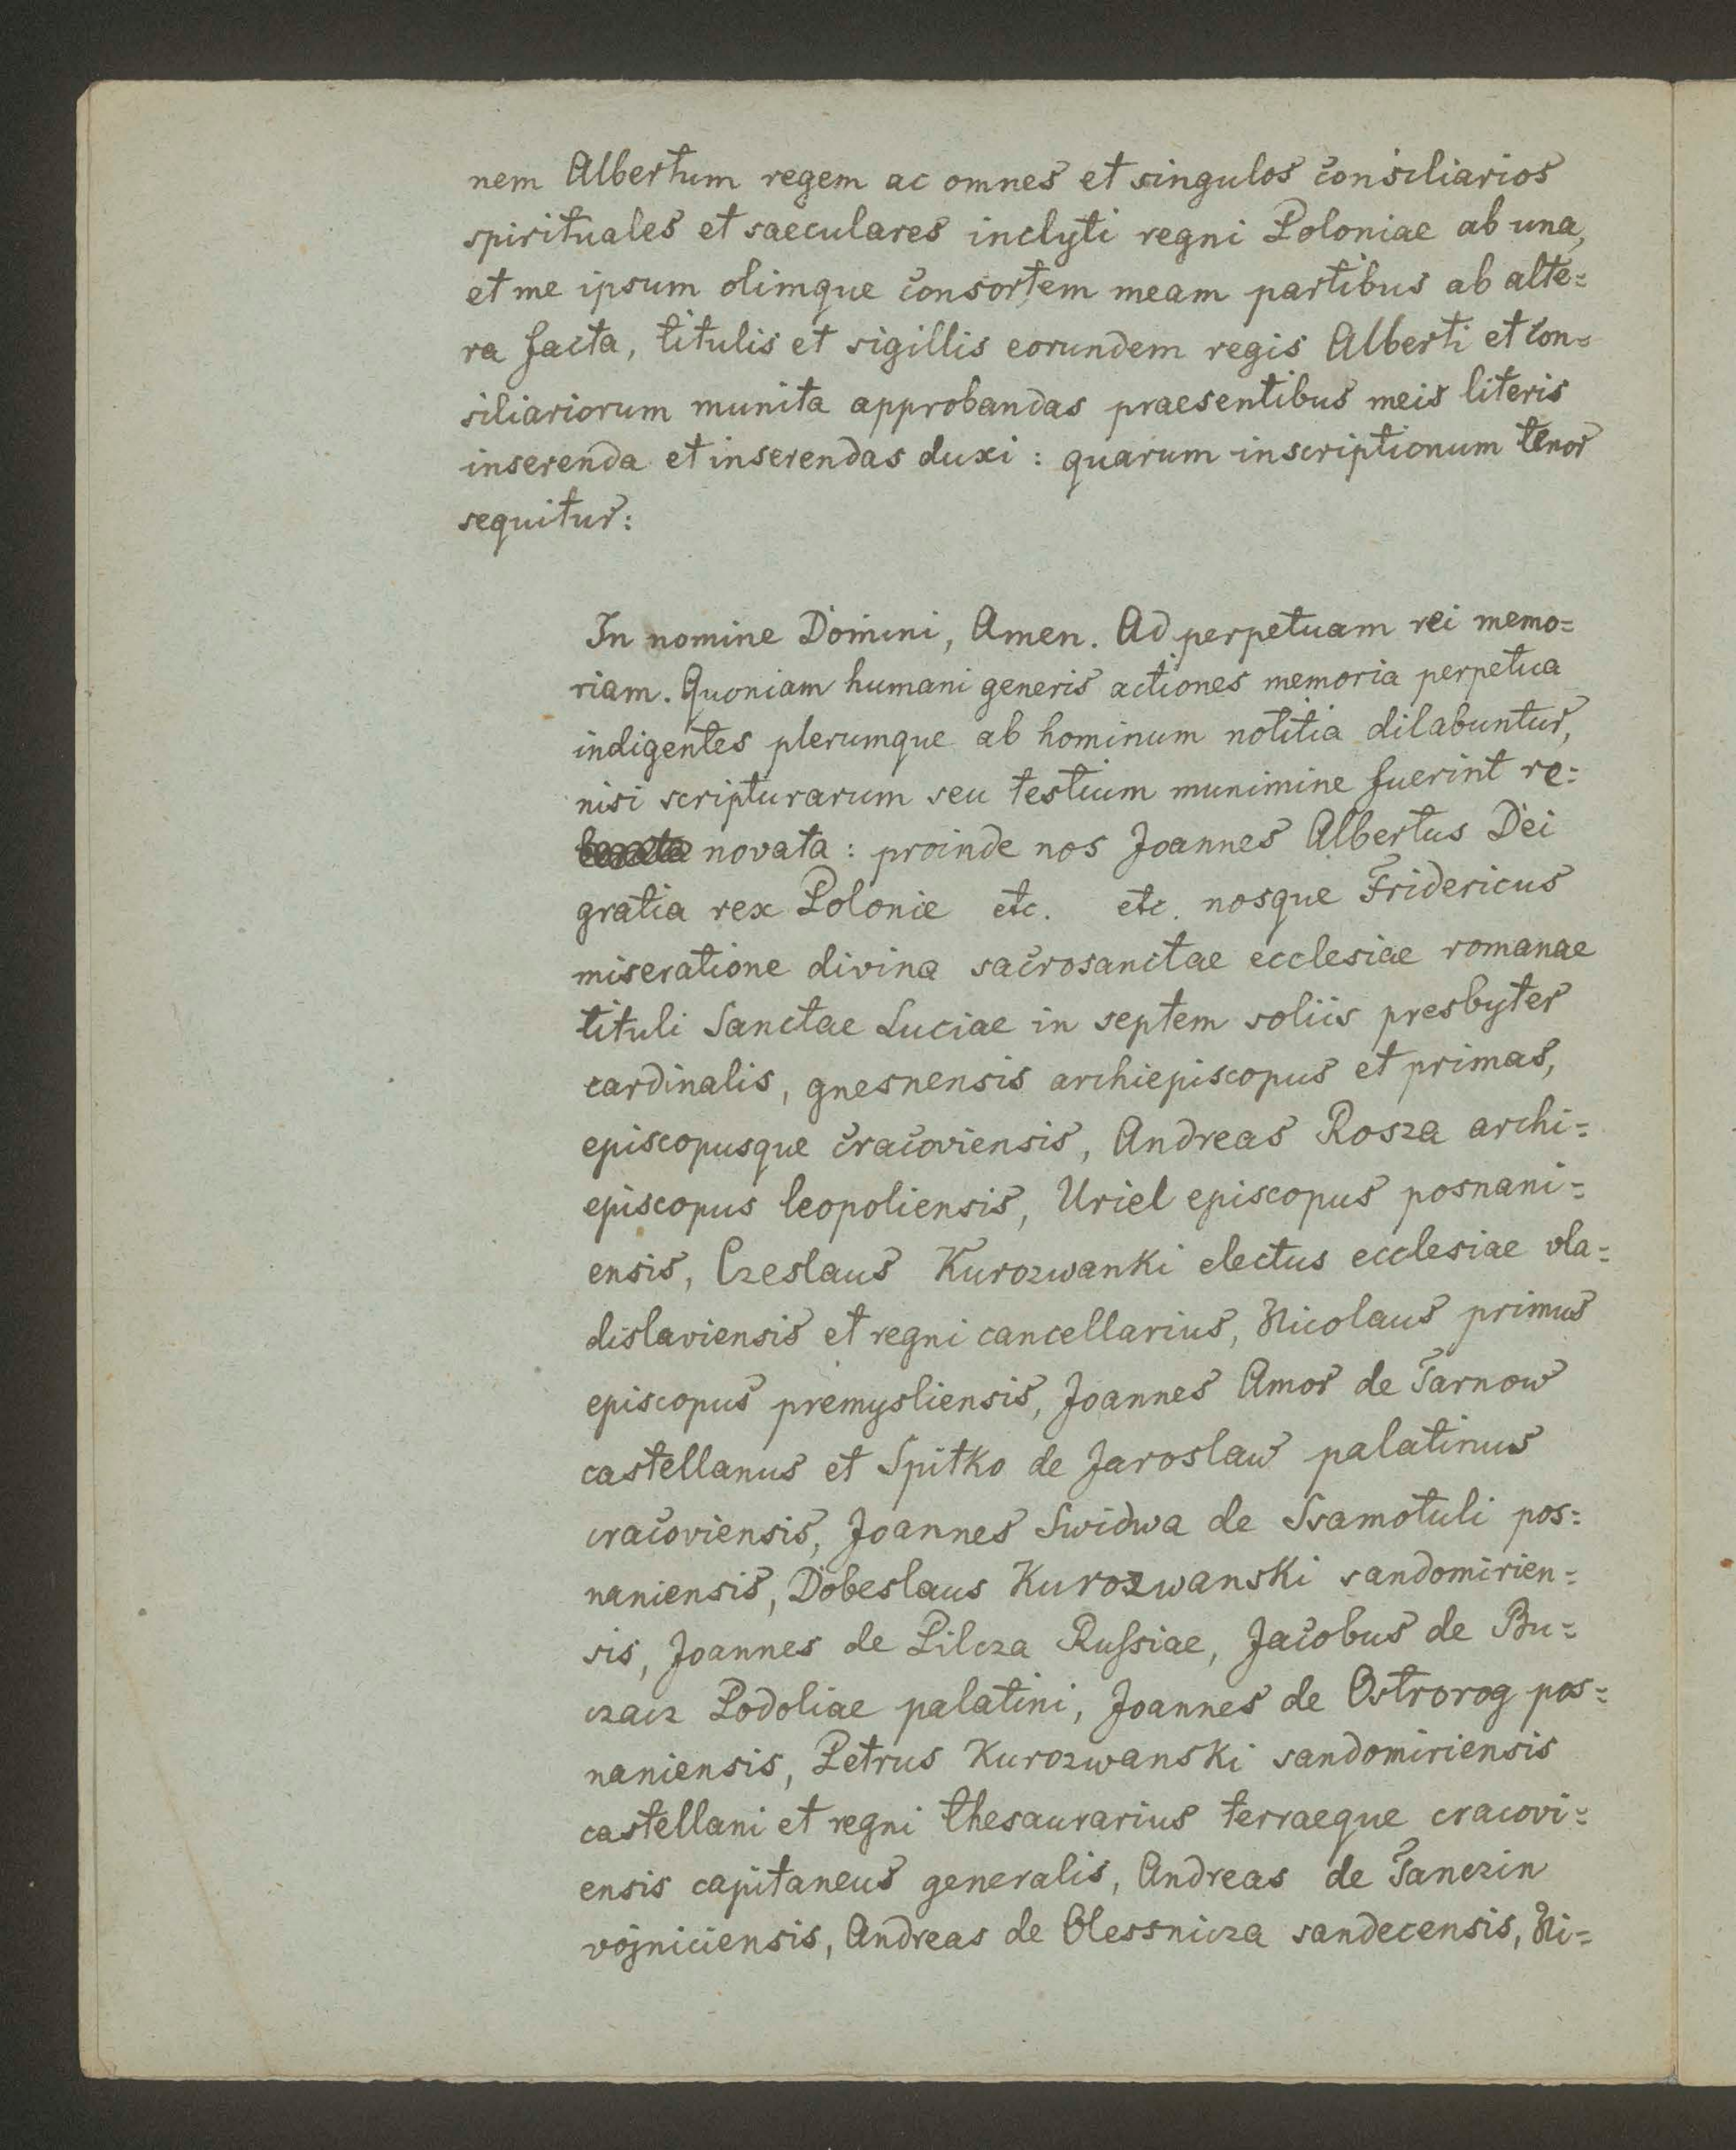 nem Albertum regem ac omnes et singulos consiliarios
spirituales et saeculares inclyti regni Poloniae ab una,
et me ipsum olimque consortem meam partibus ab alte=
ra facta, titulis et sigillis eorundem regis Alberti et con=
siliariorum munita approbandas praesentibus meis literis
inserenda et inserendas duxi : quarum inscriptionum tenor
sequitur:
In nomine Domini, Amen. Ad perpetuam rei memo=
riam. Quoniam humani generis actiones memoria perpetua
indigentes plerumque ab hominum notitia dilabuntur,
nisi scripturarum seu testium munimine fuerint re=
novata : proinde nos Joannes Albertus Dei
gratia rex Polonie etc. etc. nosque Fridericus
miseratione divina sacrosanctae ecclesiae romanae
tituli Sanctae Luciae in septem soliis presbyter
cardinalis, gnesnensis archiepiscopus et primas,
episcopusque cracoviensis, Andreas Rosza archi=
episcopus leopoliensis, Uriel episcopus posnani=
ensis, Czeslaus Kurozwanki electus ecclesiae vla=
dislaviensis et regni cancellarius, Nicolaus primus
episcopus premysliensis, Joannes Amor de Tarnow
castellanus et Spitko de Jaroslaw palatinus
cracoviensis, Joannes Swidwa de Ssamotuli pos=
naniensis, Dobeslaus Kurozwanski sandomirien=
sis, Joannes de Pilcza Russiae, Jacobus de Bu=
czacz Podoliae palatini, Joannes de Ostrorog pos=
naniensis, Petrus Kurozwanski sandomiriensis
castellani et regni thesaurarius terraeque cracovi=
ensis capitaneus generalis, Andreas de Tanczin
vojniciensis, Andreas de Olessnicza sandecensis, Ni=